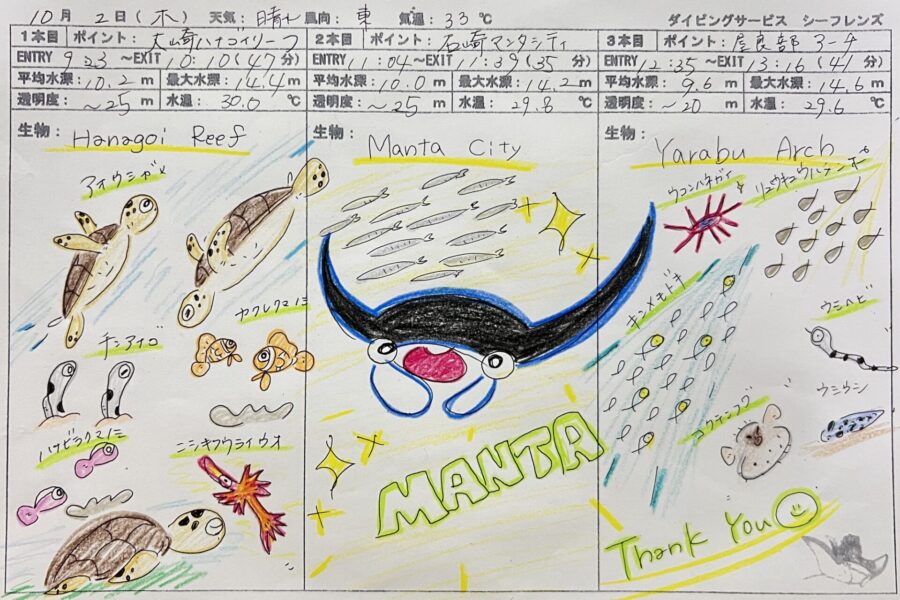 10月 2日(木) 天気: 晴れ 風向: 東 気温: 33℃ ダイビングサービス シーフレンズ
1本目 ポイント: 大崎ハナゴイリーフ
ENTRY 9:23 ~EXIT 10:10 (47分)
平均水深: 10.2 m 最大水深: 14.4 m
透明度: ~25 m 水温: 30.0 ℃
生物: Hanagoi Reef
アオウミガメ
カクレクマノミ
チンアナゴ
ハナビラクマノミ
ニシキフウライウオ
2本目 ポイント: 石崎マンタシティ
ENTRY 11:04 ~EXIT 11:39 (35分)
平均水深: 10.0 m 最大水深: 14.2 m
透明度: ~25 m 水温: 29.8 ℃
生物: Manta City
MANTA
3本目 ポイント: 屋良部アーチ
ENTRY 12:35 ~EXIT 13:16 (41分)
平均水深: 9.6 m 最大水深: 14.6 m
透明度: ~20 m 水温: 29.6 ℃
生物: Yarabu Arch
ウコンハネガイ
リュウキュウハタンポ
キンメモドキ
ウミヘビ
コクテンフグ
ウミウシ
Thank You